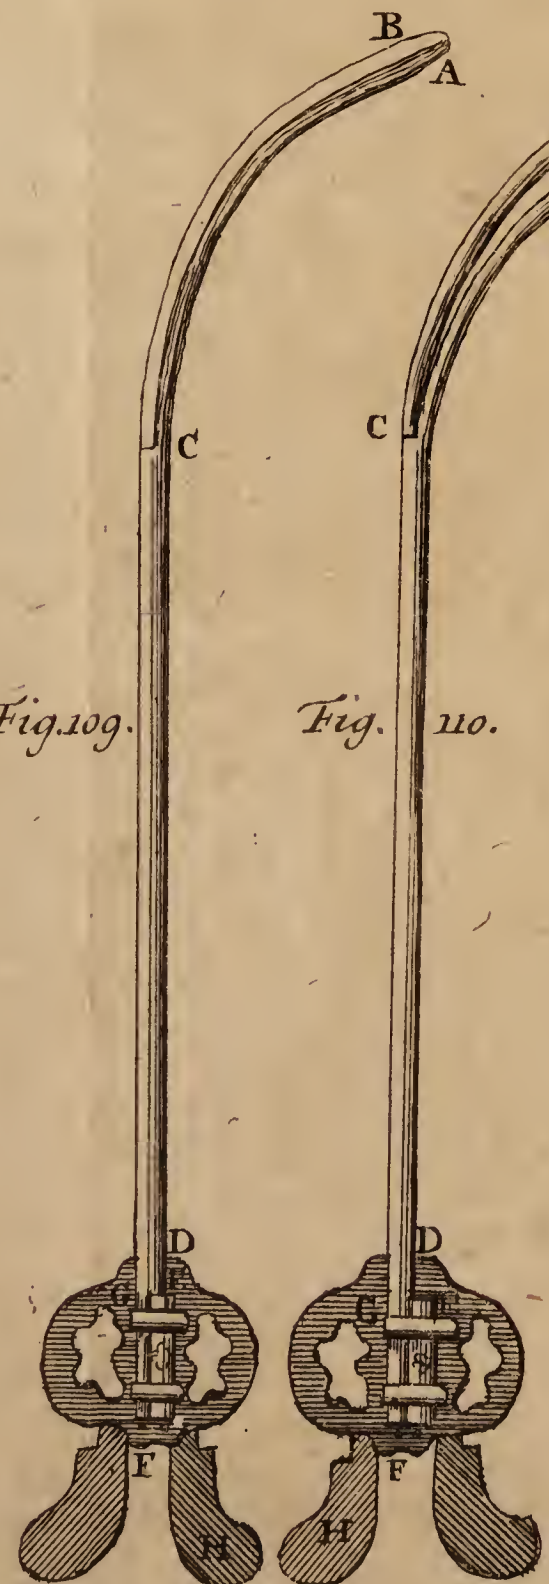 B
A
C
C
Fig. 109.
Fig. 110.
D
D
G
G
F
F
H
H